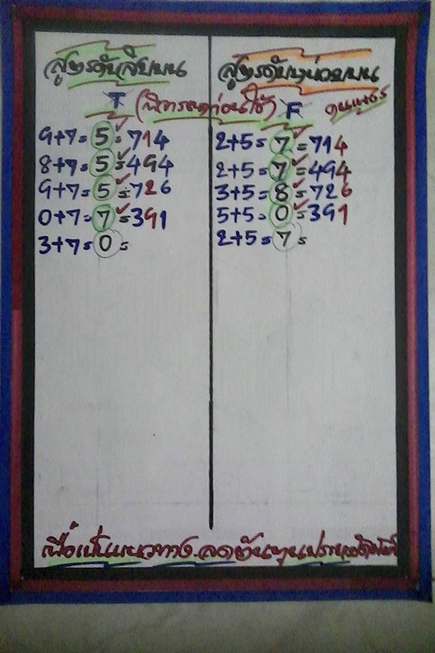 สูตรดับสิบบน สูตรดับหน่วยบน
T (พิจารณาก่อนใช้) F
9+7=5=714 2+5=7=714
8+7=5=494 2+5=7=494
9+7=5=726 3+5=8=726
0+7=7=391 5+5=0=391
3+7=0= 2+5=7=
เพื่อเป็นแนวทาง ลดต้นทุน